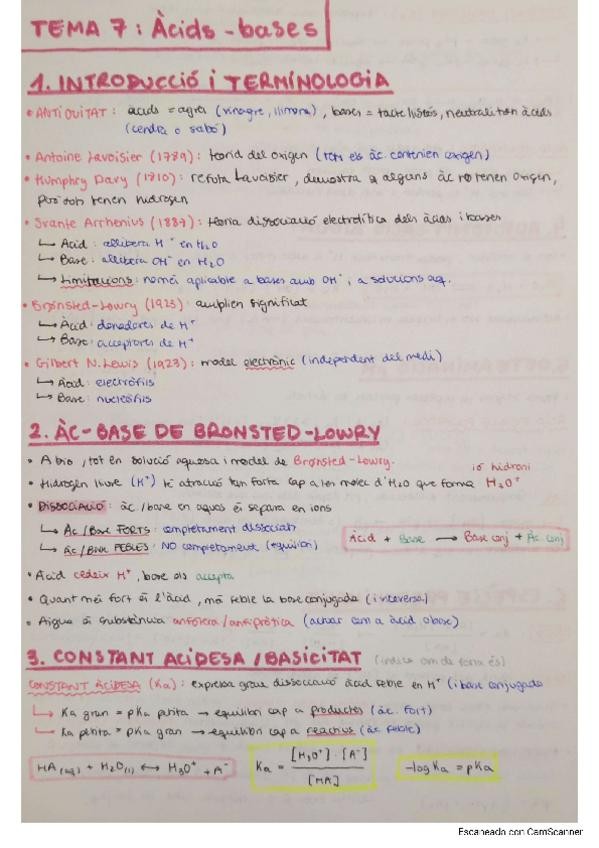 TEMA 7: Àcids-bases
1. INTRODUCCIÓ i TERMINOLOGIA
• ANTIGUITAT: àcids = agres (vinagre, llimona), bases = tacte llisós, neutralitzen àcids
(cendra o sabó)
• Antoine Lavoisier (1789): teoria del origen (tots els àc. contenien oxigen)
• Humphry Davy (1810): refuta Lavoisier, demostra q alguns àc no tenen oxigen,
però tots tenen hidrogen
• Svante Arrhenius (1887): teoria dissociació electrolítica dels àcids i bases
↳ Àcid: allibera H⁺ en H₂O
↳ Base: allibera OH⁻ en H₂O
↳ Limitacions: només aplicable a bases amb OH⁻, i a solucions aq.
• Brønsted-Lowry (1923): amplien significat
↳ Àcid: donadores de H⁺
↳ Base: acceptores de H⁺
• Gilbert N. Lewis (1923): model electrònic (independent del medi)
↳ Àcid: electròfils
↳ Base: nucleòfils
2. ÀC-BASE DE BRØNSTED-LOWRY
• A bio, tot en solució aquosa i model de Brønsted-Lowry.
ió hidroni
• Hidrogen lliure (H⁺) té atracció tan forta cap a les molec d'H₂O que forma H₃O⁺
• DISSOCIACIÓ: àc./base en aquos es separa en ions
↳ Àc/Base FORTS: completament dissociats
↳ àc/Base FEBLES: NO completament (equilibri)
Àcid + Base → Base conj + Àc conj
• Àcid cedeix H⁺, base els accepta
• Quant més fort és l'àcid, més feble la base conjugada (i inversa)
• Aigua és substància amfòtera/amfipròtica (actuar com a àcid o base)
3. CONSTANT ACIDESA / BASICITAT (indica com de forta és)
CONSTANT ACIDESA (Ka): expressa grau dissociació àcid feble en H⁺ (i base conjugada
↳ Ka gran = pKa petita → equilibri cap a productes (àc. fort)
↳ Ka petita = pKa gran → equilibri cap a reactius (àc feble)
HA(aq) + H₂O(l) ↔ H₃O⁺ + A⁻
Ka = [H₃O⁺]·[A⁻] / [HA]
-log Ka = pKa
Escaneado con CamScanner